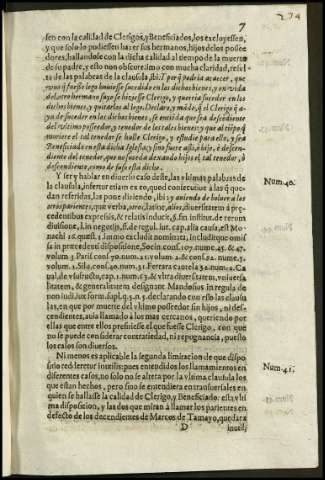 7
274
sen con la calidad de Clerigos, y Beneficiados, los excluyessen,
y que solo lo pudiessen hazer sus hermanos, hijos de los posee
dores, hallandose con la dicha calidad al tiempo de la muerte
de su padre, y esto non obscurè, imò con mucha claridad, resul
ta de las palabras de la clausula, ibi: Y porq̃ podria acaecer, que
uno q̃ fuesse lego huviesse sucedido en los dichos bienes, y en vida
del, otro hermano suyo se hiziesse Clerigo, y querria suceder en los
dichos bienes, y quitarlos al lego. Declaro, y mãdo, q̃ el Clerigo q̃ a-
ya de suceder en los dichos bienes, se entiẽda que sea descendiente
del ultimo posseedor, y tenedor de los tales bienes; y que al tiẽpo q̃
muriere el tal tenedor se halle Clerigo, y estudie para ello, y sea
Beneficiado en esta dicha Iglesia, y sino fuere assi, è hijo, è descen-
diente del tenedor, que no suceda devandò hijos el tal tenedor, ò
descendientes, como de suso està dicho.
Y ser y hablar en diverso caso deste, las ultimas palabras de
la clausula, infertur etiam ex eo, quod consecutivè a las q̃ que-
dan referidas, las pone diziendo, ibi: y aviendo de bolver a los
otros parientes, que verba, otro, latinè, alius, diversitatem à prę-
cedentibus expressis, & relatis inducit, §. fin. institut. de rerum
divisione, l. in negotijs, ff. de regul. iur. cap. alia causa, est Mo-
nachi 16. quæst. 1. Immo excludit nominata, includitque omis
sa in precedenti dispositione, Socin. cons. 107. nume. 45. & 47.
volum. 3. Paris. cons. 70. num. 21. volum. 2. & cons. 92. numer. 5.
volum. 2. Sila, cons. 40. num. 31. Ferrara cautela 32. num. 2. Ca
ual, de usufructu, cap. 1. num. 63. & ultra diversitatem, univers-
litatem, & generalitatem designant Mandosius in regula de
non iudi. ius form. supl. q. 5. n. 5. declarando con essò las clausu
las, en que por muerte del ultimo posseedor sin hijos, ni des-
cendientes, avia llamado a los mas cercanos, queriendo por
ellas que entre ellos prefiriesse el que fuesse Clerigo, con que
no se puede considerar contrariedad, ni repugnancia, puesto
los casos son diversos.
Num. 40.
Ni menos es aplicable la segunda limitacion de que dispo
sitio redderetur inutilis: pues entendidos los llamamientos en
diferentes casos, no solo no se altera por la ultima clausula los
que estan hechos, pero sino se entendiera en transuersales en
quien se hallasse la calidad de Clerigo, y Beneficiado: esta ulti
ma disposicion, y las dos que miran a llamar los parientes en
defecto de los decendientes de Marcos de Tamayo, quedara
Num. 41.
D
inutil;